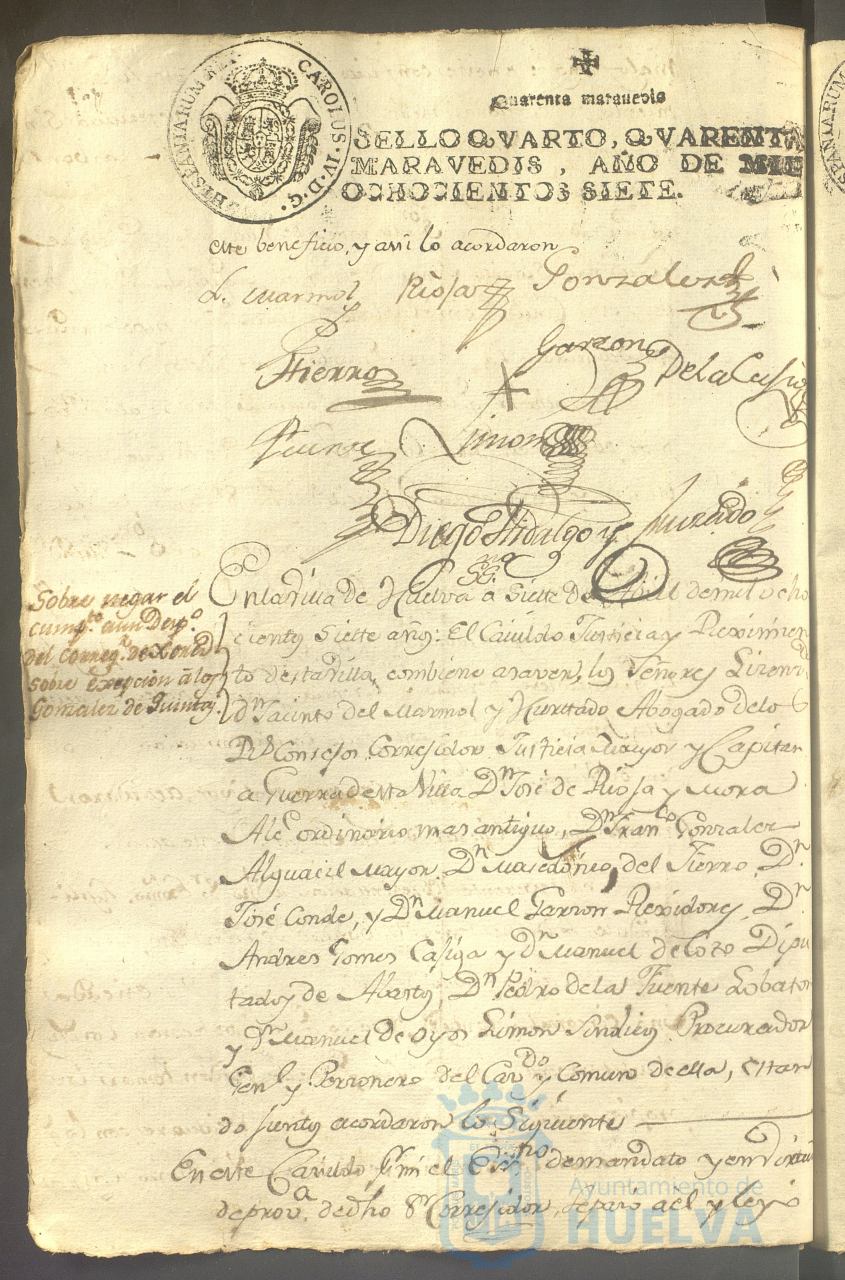 HISPANIARUM REX CAROLUS·IV·D·G·
Quarenta maravedis
SELLO QVARTO, QVARENTA
MARAVEDIS, AÑO DE MIL
OCHOCIENTOS SIETE.
este beneficio, y assi lo acordaron
L. Marmol Rioja Gonzalez
Garzon
Fierro De la Casiga
Fuente Limon
Diego Hidalgo y Hurtado
SSno
Sobre negar el
cumpto. a un Desp.o
del Correg.r de
sobre exepcion a los
Gonzalez de Quintas
En la Villa de Huelva a Siette de Abril de mil ocho
cientos Siette años: El Cavildo Justicia y Reximien
to de esta Villa, combiene a saver, los Señores Lizenz.do
dn. Jacinto del Marmol y Hurttado Abogado de los
Rs. Consejos Corregidor Justicia Mayor y Capitan
a Guerra de esta Villa Dn. José de Rioja y Mora
Alc.e ordinario mas antiguo, Dn. Fran.co Gonzalez
Alguacil Mayor, Dn. Masedonio, del Fierro, Dn.
José Conde, y Dn. Manuel Garzon Rexidores, Dn.
Andres Gomes Casiga y dn. Manuel de Coto Dipu
tados de Abastos, Dn. Pedro de la Fuente Lobaton
y Dn. Manuel de Oyos Limon Sindicos Procurador
Gen.l y Perzonero del Cav.do y Comun de ella, estan
do juntos acordaron lo Siguiente
En este Cavildo Yo el Ess.no de mandato y en virtud
de prov.a de dho Sr. Corregidor, se paró aél y leyó
Ayuntamiento de
HUELVA